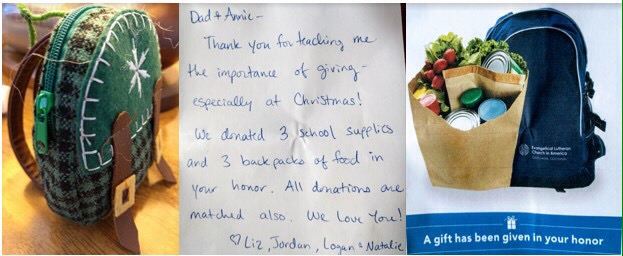 Dad + Annie -
Thank you for teaching me
the importance of giving -
especially at Christmas!
We donated 3 school supplies
and 3 backpacks of food in
your honor. All donations are
matched also. We Love You!
♡ Liz, Jordan, Logan & Natalie
Evangelical Lutheran
Church in America
A gift has been given in your honor